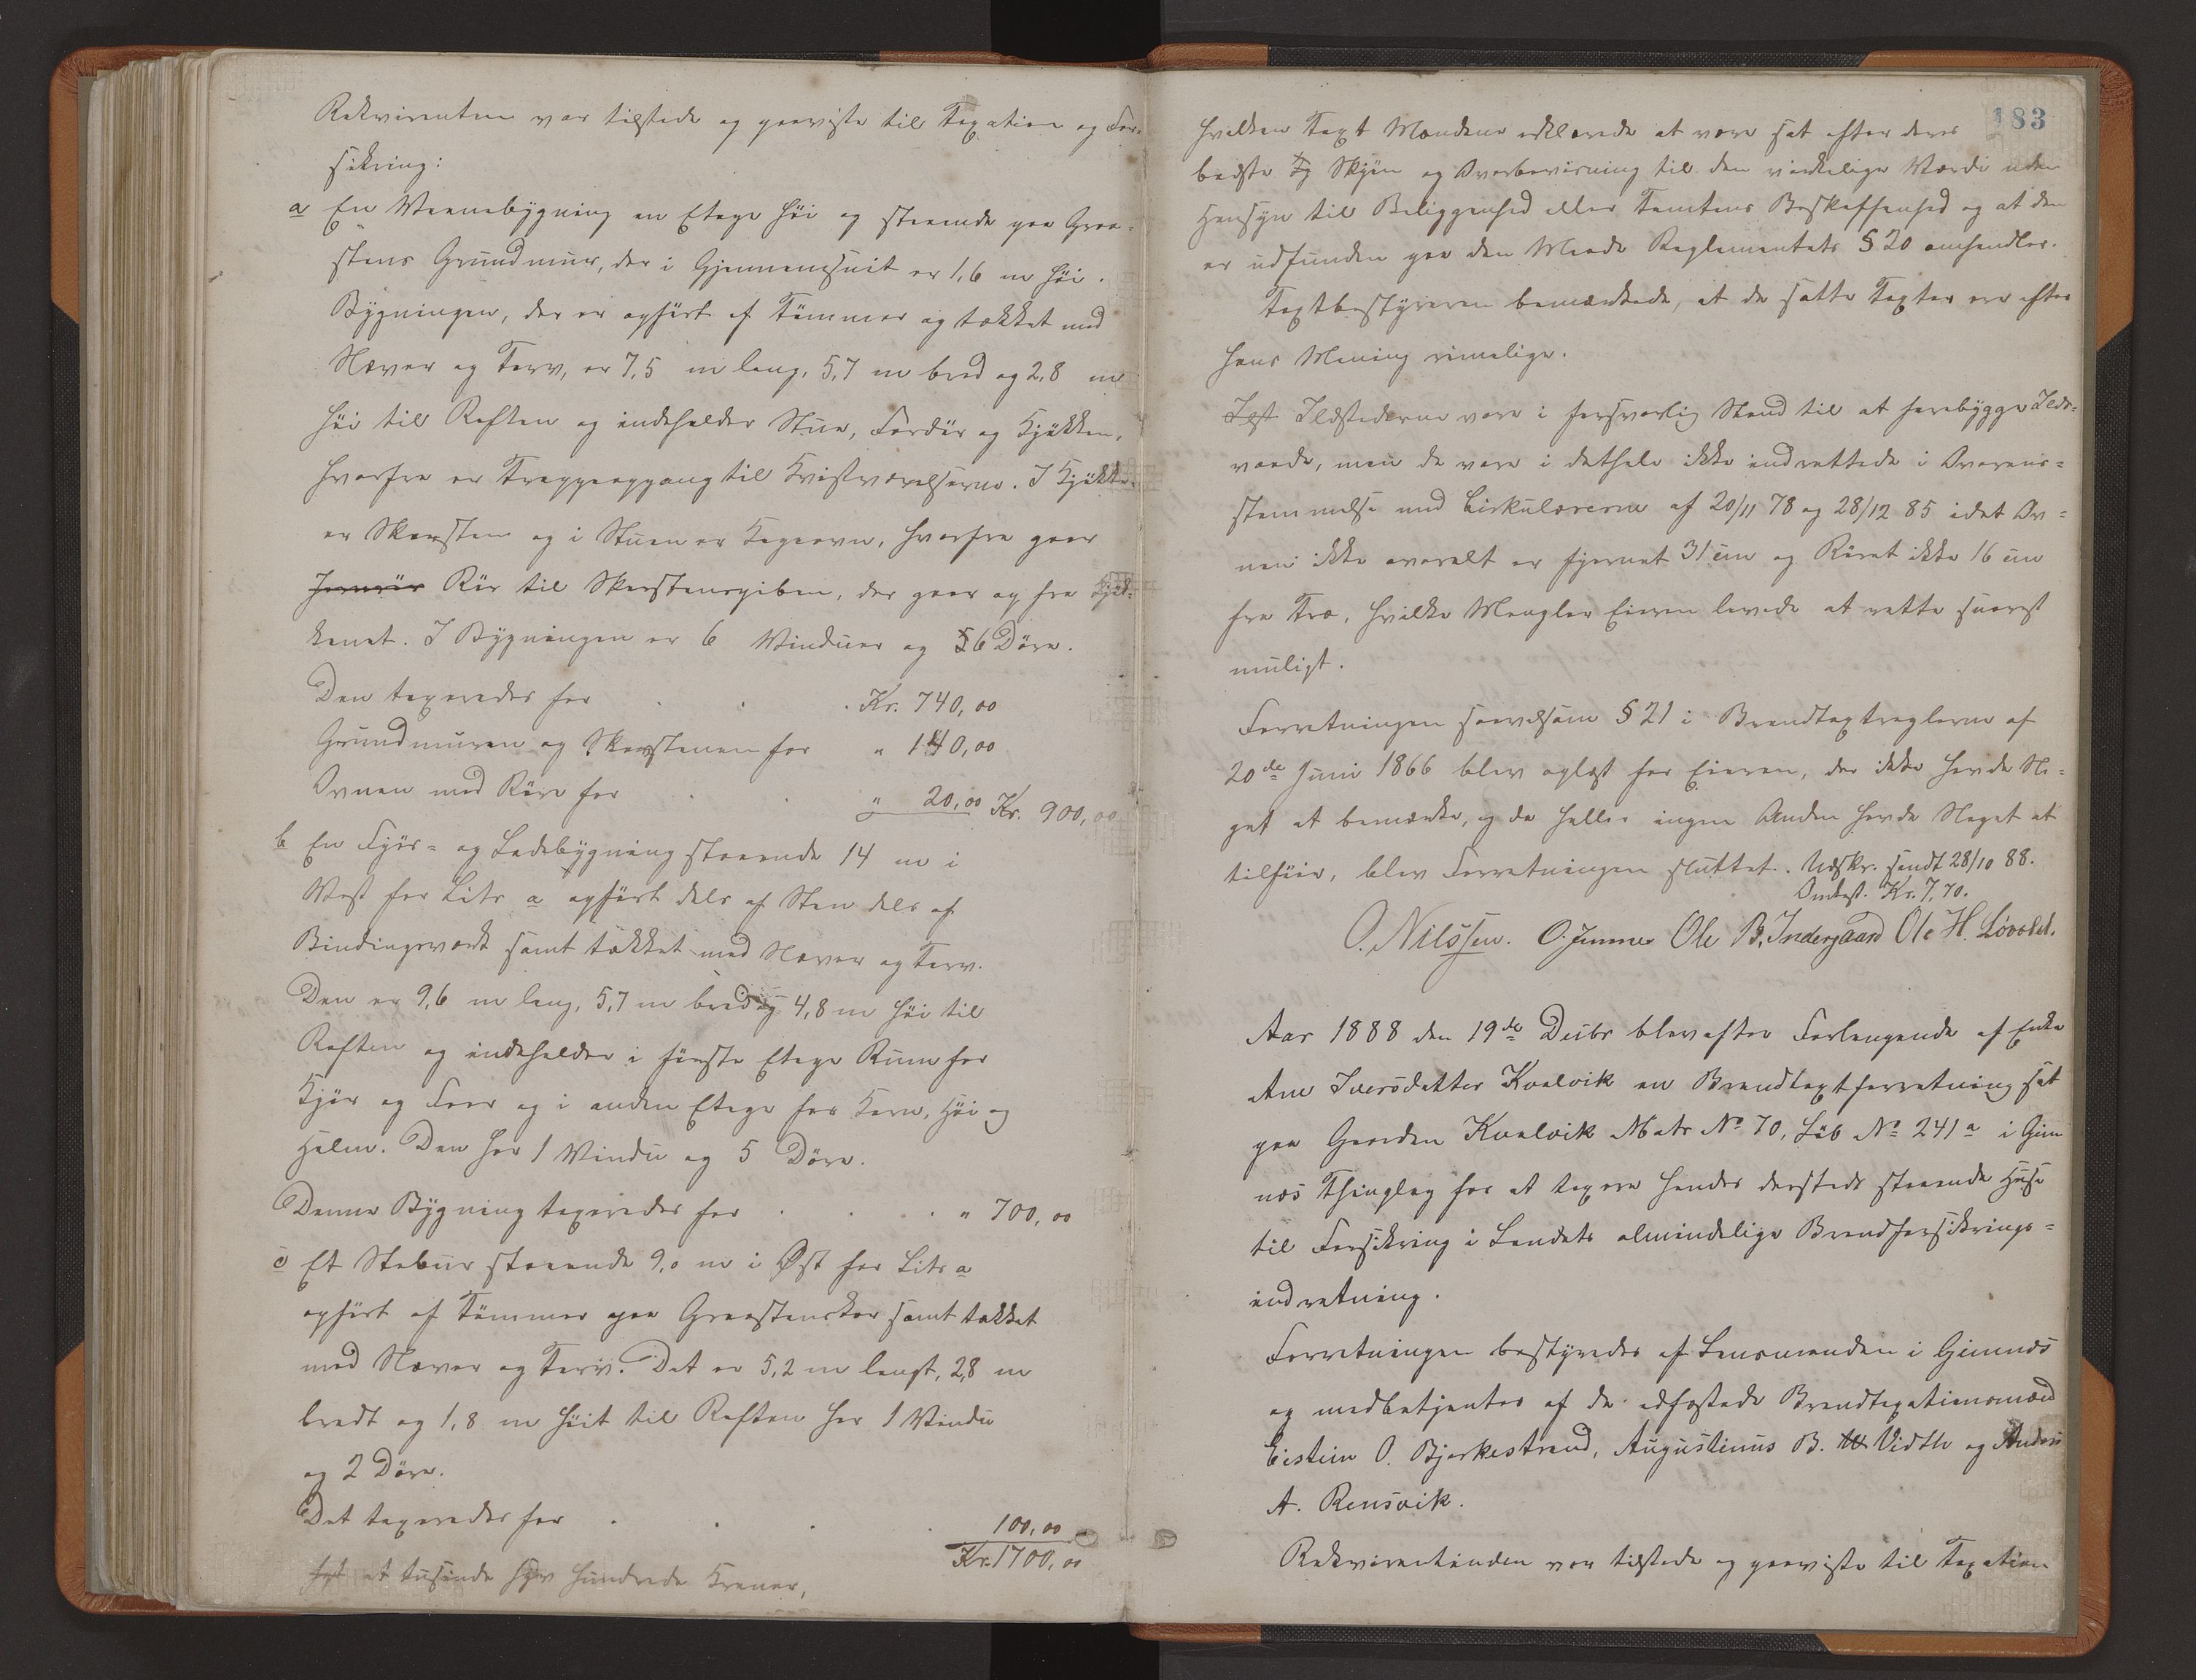 Rekvirenten var tilstede og paaviste til Taxation og For-
sikring:
a En Vaanebygning en Etage høi og staaende paa Graa-
stens Grundmur, der i Gjennemsnit er 1,6 m høi.
Bygningen, der er opført af Tømmer og tækket med
Næver og Torv, er 7,5 m lang, 5,7 m bred og 2,8 m
høi til Raften og indeholder Stue, Fordør og Kjøkken,
hvorfra er Trappeopgang til Kvistværelserne. I Kjøkke-
er Skorsten og i Stuen er Kogeovn, hvorfra gaar
Jernrør Rør til Skorstenspiben, der gaar op fra Kjøk-
kenet. I Bygningen er 6 Vinduer og 5 6 Døre.
Den taxeredes for . . . Kr. 740,00
Grundmuren og Skorstenen for " 140,00
Ovnen med Rør for . . " 20,00 Kr. 900,00
b En Fjøs- og Ladebygning staaende 14 m i
Vest for Litr a opført dels af Sten dels af
Bindingsværk samt tækket med Næver og Torv.
Den er 9,6 m lang, 5,7 m bred og 4,8 m høi til
Raften og indeholder i første Etage Rum for
Kjør og Foer og i anden Etage for Korn, Høi og
Halm. Den har 1 Vindu og 5 Døre.
Denne Bygning taxeredes for . . . " 700,00
c Et Stabur staaende 9,0 m i Øst for Litr a
opført af Tømmer paa Graastensker samt tækket
med Næver og Torv. Det er 5,2 m langt, 2,8 m
bredt og 1,8 m høit til Raften har 1 Vindu
og 2 Døre.
Det taxeredes for . . . . 100,00
Kr. 1700,00
et tusinde syv hundrede Kroner,
183
hvilken Taxt Mændene erklærede at være sat efter deres
bedste Skjøn og Overbevisning til den virkelige Værdi uden
Hensyn til Beliggenhed eller Tomtens Beskaffenhed og at den
er udfunden paa den Maade Reglementets § 20 omhandler.
Taxtbestyreren bemærkede, at de satte Taxter er efter
hans Mening rimelige.
Ildstederne vare i forsvarlig Stand til at forebygge Ilds-
vaade, men de vare i dethele ikke indrettede i Overens-
stemmelse med Cirkulærerne af 20/11 78 og 28/12 85 idet Ov-
nen ikke overalt er fjernet 31 cm og Røret ikke 16 cm
fra Træ, hvilke Mangler Eieren lovede at rette snarest
muligt.
Forretningen saavelsom § 21 i Brandtaxtreglerne af
20de Juni 1866 blev oplæst for Eieren, der ikke havde No-
get at bemærke, og da heller ingen Anden havde Noget at
tilføie, blev Forretningen sluttet. Udskr. sendt 28/10 88.
Omkost. Kr. 7,70.
O. Nilssen. O. Jenner Ole B. Indergaard Ole H. Løvold.
Aar 1888 den 19de Decbr blev efter Forlangende af Enke
Ane Iversdatter Kvalvik en Brandtaxtforretning sat
paa Gaarden Kvalvik Matr No 70, Løb No 241a i Gim
nes Thinglag for at taxere hendes dersteds staaende Huse
til Forsikring i Landets almindelige Brandforsikrings-
indretning.
Forretningen bestyredes af Lensmanden i Gimnes
og medbetjentes af de edfæstede Brandtaxationsmænd
Eistein O. Bjerkestrand, Augustinus B. Vidth og Anders
A. Rensvik.
Rekvirentinden var tilstede og paaviste til Taxation